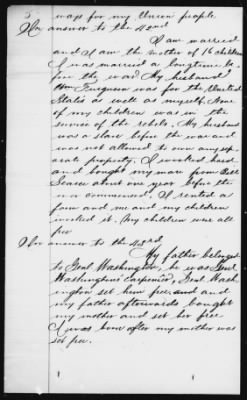 5 ways for my Union people
In answer to the 42nd
I am married
and I am the mother of 16 children
I was married a longtime be
fore the war My husband
Wm Ferguson was for the United
States as well as myself. None
of my children was in the
service of the rebels. My husband
was a slave before the war and
was not allowed to own any sep
arate property. I worked hard
and bought my mare from Bill
about one year before the
war commenced. I rented a
farm and me and my children
worked it. My children were all
free
In answer to the 43rd
My father belonged
to Genl Washington, he was Genl
Washingtons Carpenter, Genl Wash
ington set him free and and
my father afterwards bought
my mother and set her free
I was born after my mother was
set free.